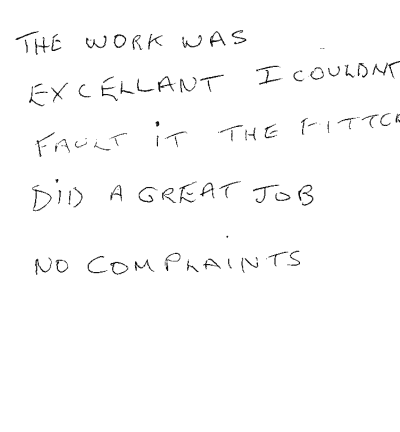 THE WORK WAS
EXCELLANT I COULDNT
FAULT IT THE FITTER
DID A GREAT JOB
NO COMPLAINTS